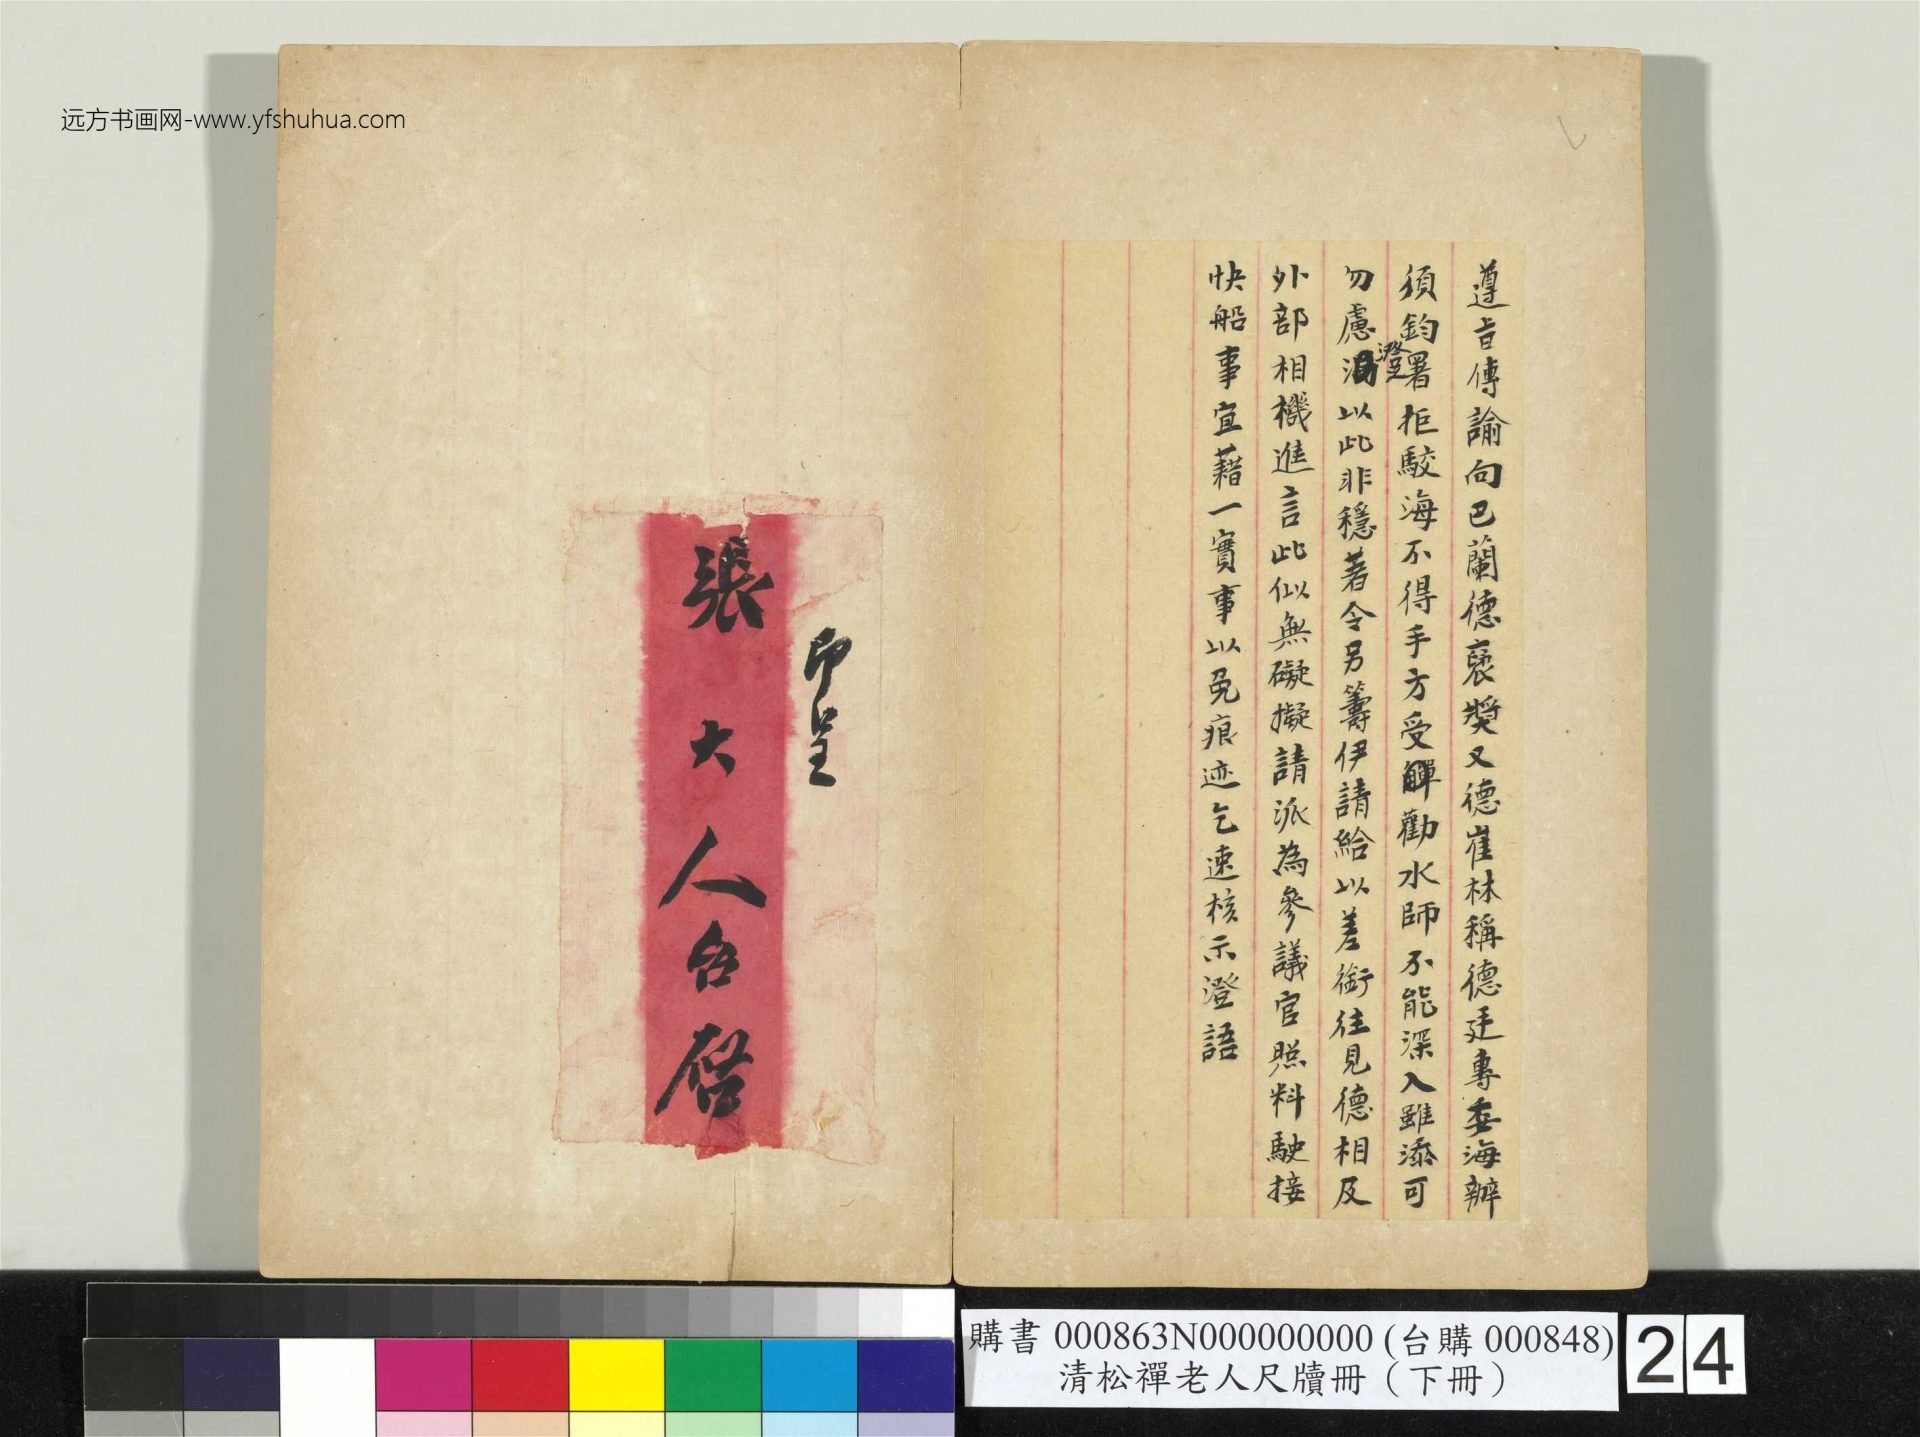 远方书画网-www.yfshuhua.com
遵旨傳諭向巴蘭德褒獎又德崔林稱德廷專委海辦
須鈞署拒駁海不得手方受勸水師不能深入雖添可
勿慮澄以此非穩著令另籌伊請給以差銜往見德相及
外部相機進言此似無礙擬請派為參議官照料駛接
快船事宜藉一實事以免痕迹乞速核示澄語
印呈
張大人台啓
購書 000863N000000000 (台購 000848)
清松禪老人尺牘冊（下冊）
24